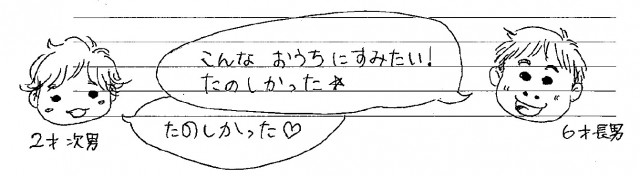 こんな おうちにすみたい!
たのしかった☆
たのしかった♡
2才 次男
6才 長男